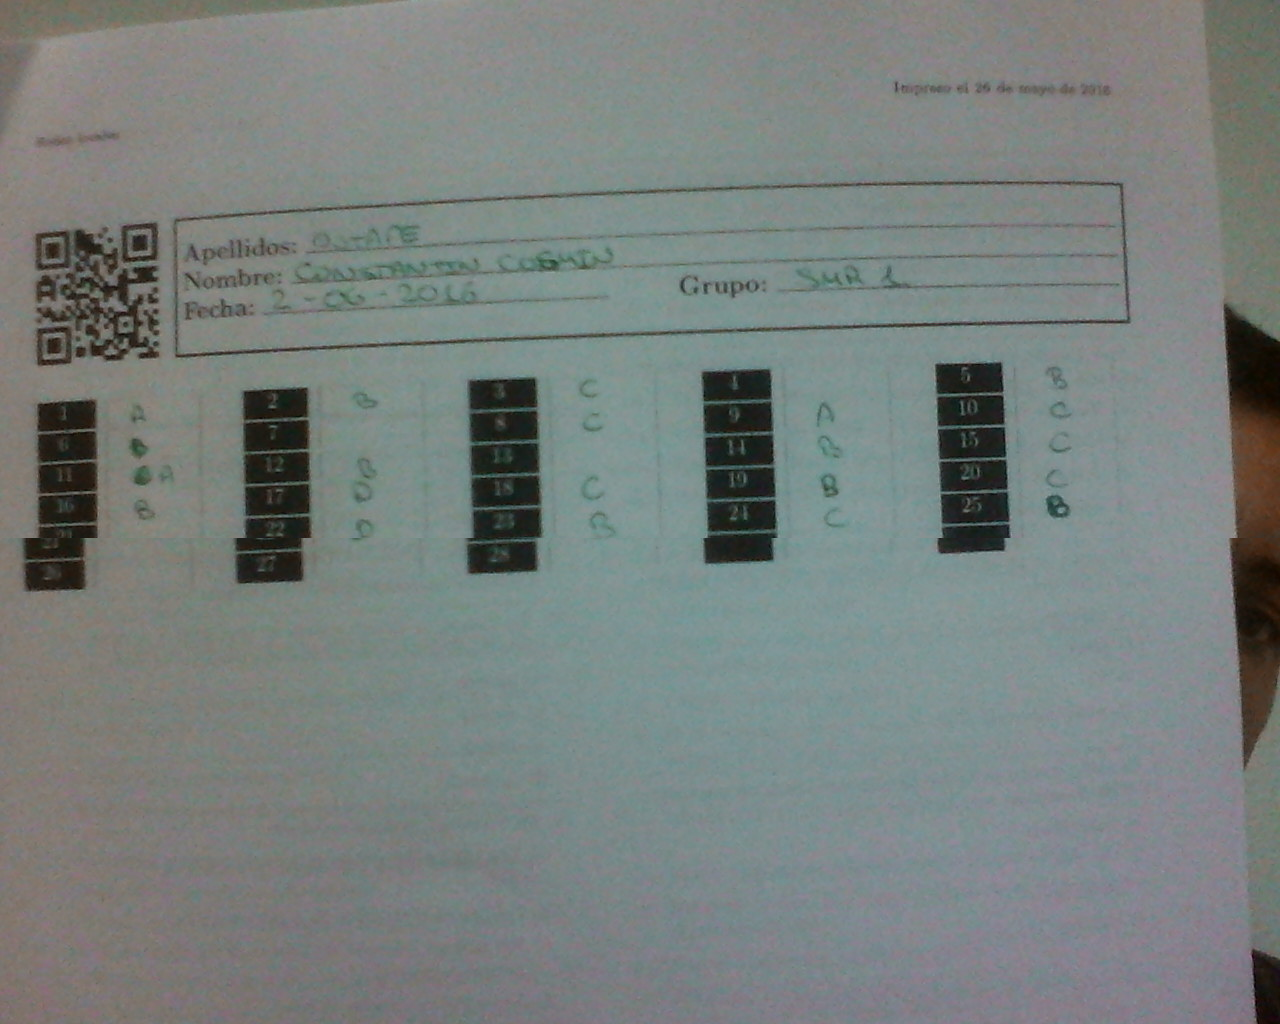 Impreso el 26 de mayo de 2016
Redes locales
Apellidos:
Nombre: CONSTANTIN COSMIN
Fecha: 2-06-2016 Grupo: SMR 1
1 A 2 B 3 C 4 5 B
6 7 8 C 9 A 10 C
11 A 12 B 13 14 B 15 C
16 B 17 D 18 C 19 B 20 C
21 22 D 23 B 24 C 25 B
26 27 28